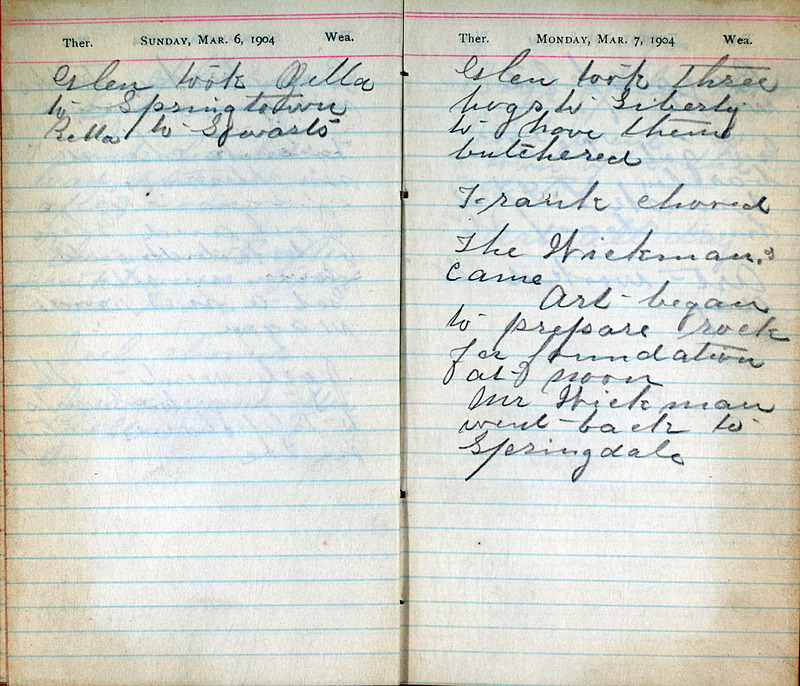 Ther. SUNDAY, MAR. 6, 1904 Wea.
Glen took Rella
to Springtown
Rella to
Ther. MONDAY, MAR. 7, 1904 Wea.
Glen took three
hogs to Liberty
to have them
butchered
Frank chored
The Wickman's
came
Art began
to prepare rock
for foundation
at noon
Mr Wickman
went back to
Springdale